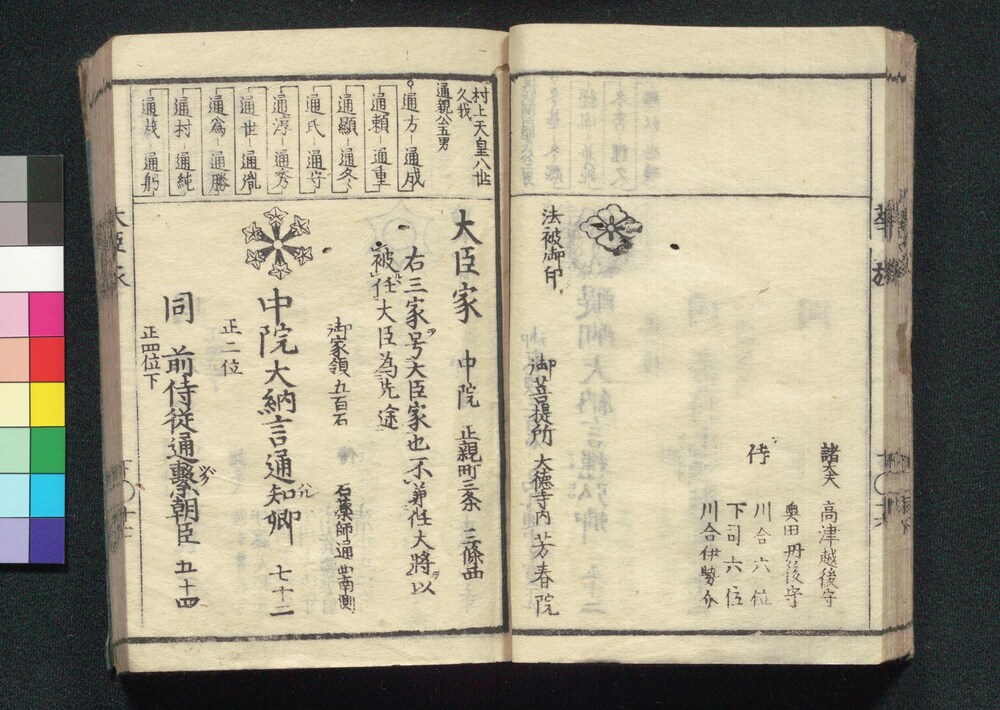 華族
諸大夫 高津越後守
奥田丹後守
侍 川合六位
下司六位
川合伊勢介
御菩提所 大徳寺内 芳春院
法被御印
村上天皇八世
久我
通親公五男
通方 通成
通頼 通重
通顕 通冬
通氏 通守
通淳 通秀
通世 通胤
通為 通勝
通村 通純
通茂 通躬
大臣家 中院 正親町三条 三條西
右三家ヲ号大臣家也不兼任大将ヲ以
被任大臣為先途
御家領 五百石 石薬師通西南側
中院大納言通知卿 七十二
正二位
同 前侍従通繋朝臣 五十四
正四位下
大臣家